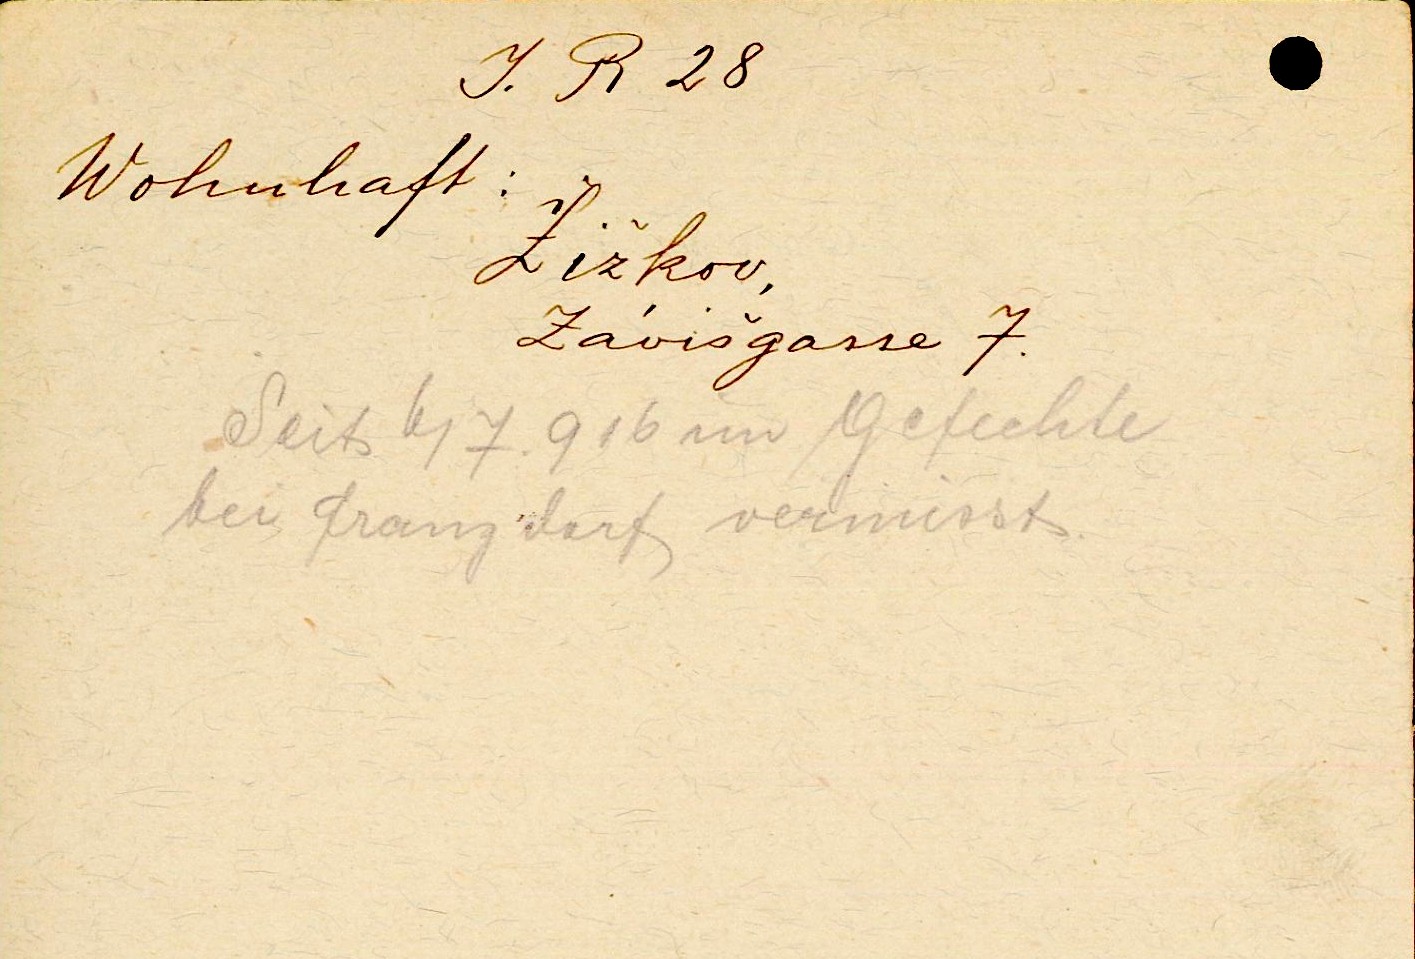 I. R 28
Wohnhaft:
Žižkov,
Závišgasse 7.
Seit 6/7. 916 im Gefechte
bei Franzdorf vermisst.